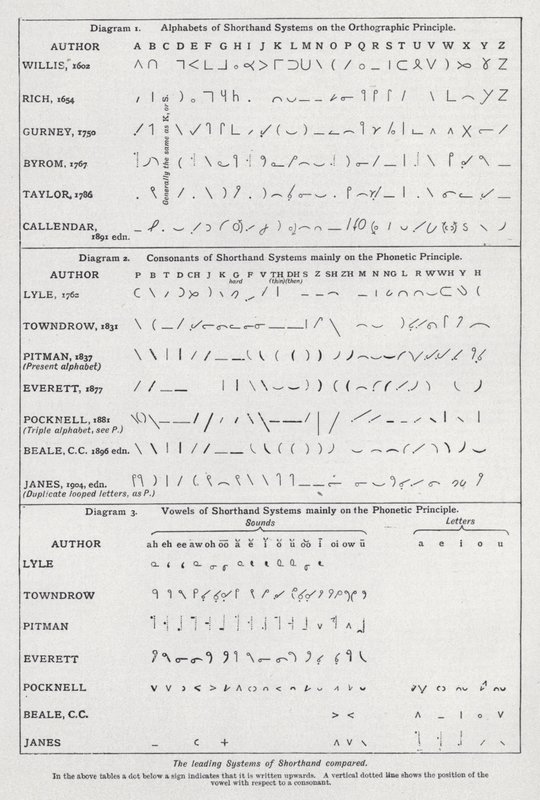 Diagram 1. Alphabets of Shorthand Systems on the Orthographic Principle.
AUTHOR A B C D E F G H I J K L M N O P Q R S T U V W X Y Z
WILLIS, 1602
RICH, 1654
GURNEY, 1750
BYROM, 1767
TAYLOR, 1786
CALLENDAR,
1891 edn.
Generally the same as K, or S.
Diagram 2. Consonants of Shorthand Systems mainly on the Phonetic Principle.
AUTHOR P B T D CH J K G F V TH DH S Z SH ZH M N NG L R W WH Y H
hard (thin)(then)
LYLE, 1762
TOWNDROW, 1831
PITMAN, 1837
(Present alphabet)
EVERETT, 1877
POCKNELL, 1881
(Triple alphabet, see P.)
BEALE, C.C. 1896 edn.
JANES, 1904, edn.
(Duplicate looped letters, as P.)
Diagram 3. Vowels of Shorthand Systems mainly on the Phonetic Principle.
Sounds Letters
AUTHOR ah eh ee aw oh o͞o ă ĕ ĭ ŏ ŭ o͝o ī oi ow ū a e i o u
LYLE
TOWNDROW
PITMAN
EVERETT
POCKNELL
BEALE, C.C.
JANES
The leading Systems of Shorthand compared.
In the above tables a dot below a sign indicates that it is written upwards. A vertical dotted line shows the position of the
vowel with respect to a consonant.